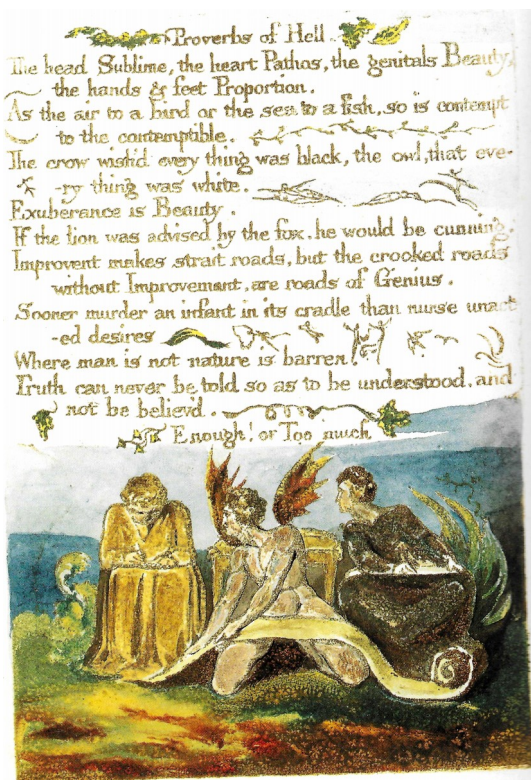 Proverbs of Hell
The head Sublime, the heart Pathos, the genitals Beauty,
the hands & feet Proportion.
As the air to a bird or the sea to a fish, so is contempt
to the contemptible.
The crow wish'd every thing was black, the owl, that eve-
-ry thing was white.
Exuberance is Beauty.
If the lion was advised by the fox. he would be cunning.
Improvent makes strait roads, but the crooked roads
without Improvement, are roads of Genius.
Sooner murder an infant in its cradle than nurse unact-
-ed desires
Where man is not nature is barren.
Truth can never be told so as to be understood, and
not be believ'd.
Enough! or Too much